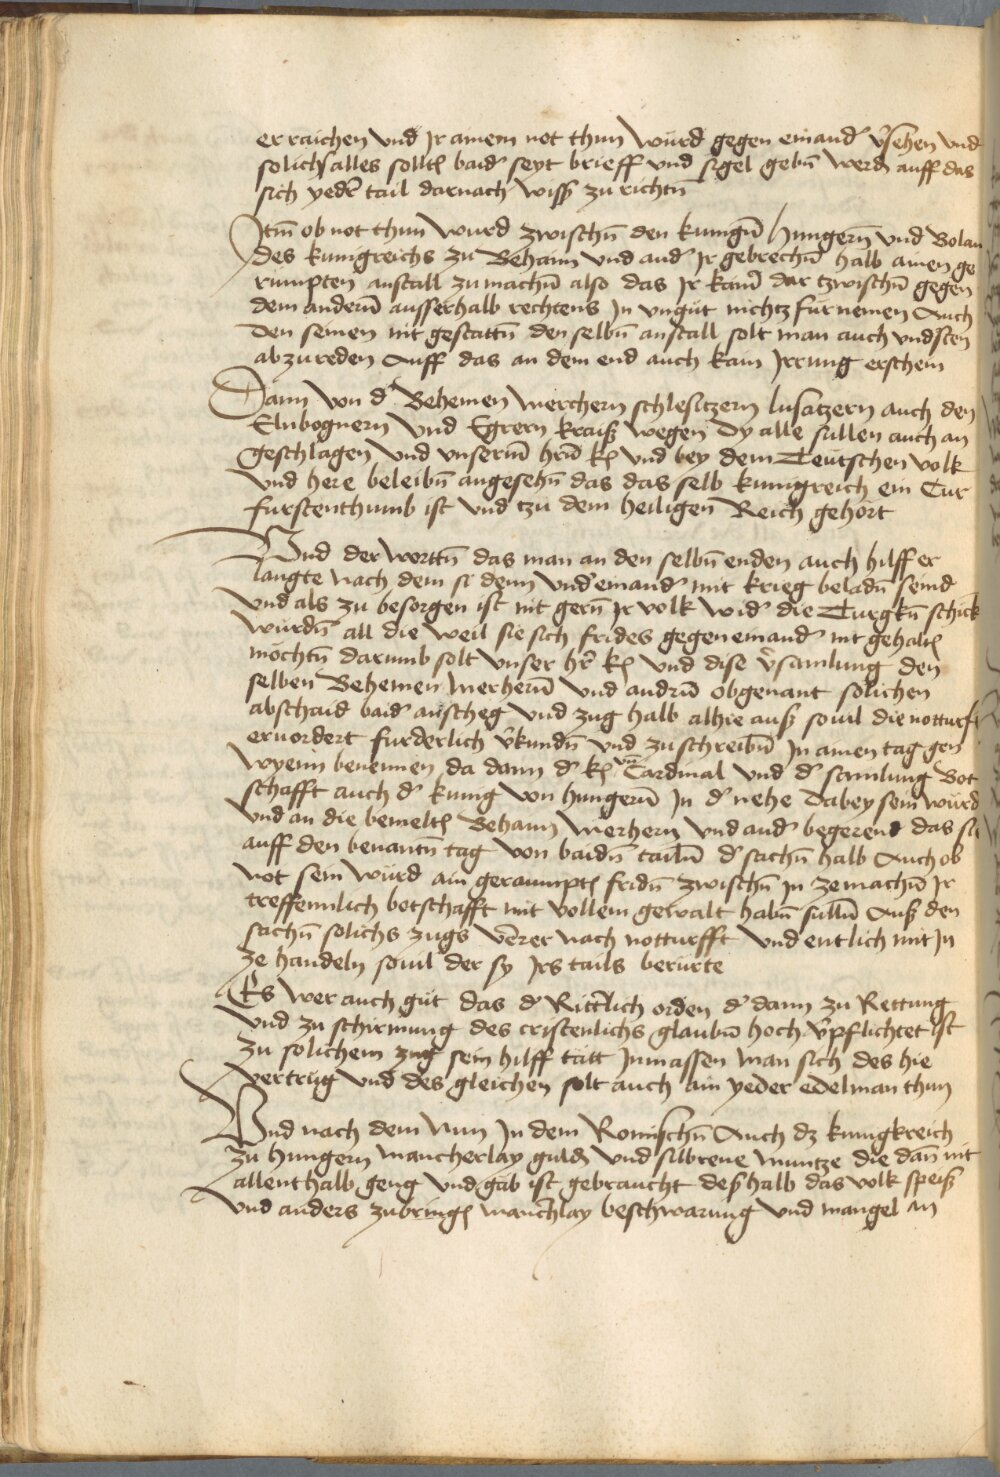 er raichen vnd Jr ainem not thun wurd gegen einand v̾sehen vnd
solichs alles sollt baid seyt brieff vnd sigel gebn̄ werd auff das
sich yeder tail darnach wiss zu richtn̄
Jtm̄ ob not thun wurd zwischn̄ den kunign̄ hungern̄ vnd Bolan
des kunigreichs zu Behaim vnd and Jr gebrechn̄ halb ainen ge
rumpten anstall zu machn̄ also das Jr kainr dar tzwischn̄ gegen
dem andern̄ ausserhalb rechtens Jn vngut nichtz fur nemen Auch
den seinen nit gestattn̄ den selbn̄ anstall solt man auch vndsten
abzureden Auff das an dem end auch kain Jrrung erschein
Dann von d Behemen merchern schlesitzern lusatzern auch den
Elnbognern vnd Egrern kraiß wegen Dy alle sullen auch an
geschlagen vnd vnserm̄ hrn̄ k vnd bey dem Teutschen volk
vnd here beleibn̄ angesehn̄ das das selb kunigreich ein Cur
furstenthumb ist vnd tzu dem heiligen Reich gehort
Vnd der wortn̄ das man an den selbn̄ enden auch hilff er
langte nach dem si denn vnd einand mit krieg beladn̄ seind
vnd als zu besorgen ist nit gern̄ Jr volk wid die Turgkn̄ schick
wurdn̄ all die weil sie sich frides gegen einand nit gehalt
mochtn̄ darumb solt vnser hr̄ k vnd dise v̾samlung den
selben Behemen merhern̄ vnd andrn̄ obgenant solichen
abschaid baid anscheg vnd zug halb alhie auß souil die notturfft
eruordert furderlich v̾kundn̄ vnd zu schreibn̄ Jn ainen tag gen
wyenn benennen da dann d k Cardinal vnd d samlung Bot
schafft auch d kunig von hungern̄ Jn d nehe dabey sein wurd
vnd an die bemelt Behaim merhern vnd and begerend das sie
auff den benantn̄ tag von baidn̄ tailn̄ d sachn̄ halb Auch ob
not sein wurd ain geraumpt fridn̄ zwischn̄ Jn ze machn̄ Jr
treffennlich botschafft mit vollem gewalt habn̄ sulln̄ Auß den
sachn̄ solichs zugs verrer nach notturfft vnd entlich mit Jn
ze handeln souil der sy Jrs tails berurte
Es wer auch gut das d Rittrlich orden d dann zu Rettung
vnd zu schirmung des cristenlichs glaubn̄ hoch v̾pflichtet ist
zu solichem zug sein hilff tatt Jnmassen man sich des hie
vertrug vnd des gleichen solt auch ain yeder edelman thun
Vnd nach dem nun Jn dem Romischn̄ Auch dz kunigkreich
zu hungern mancherlay guld vnd silbrene muntze die dan̄ nit
allenthalb geng vnd gab ist gebraucht deßhalb das volk speiß
vnd anders zubring manchrlay beschwarung vnd mangel an